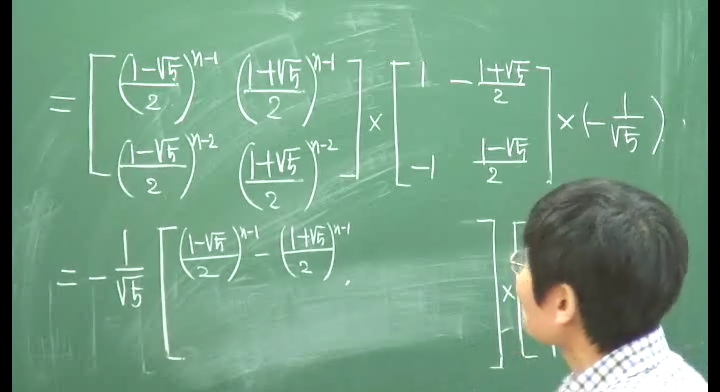 = [ ((1-√5)/2)^(n-1) ((1+√5)/2)^(n-1) ] × [ 1 -(1+√5)/2 ] × (-1/√5).
[ ((1-√5)/2)^(n-2) ((1+√5)/2)^(n-2) ] [ -1 (1-√5)/2 ]
= -1/√5 [ ((1-√5)/2)^(n-1) - ((1+√5)/2)^(n-1) . ] × [